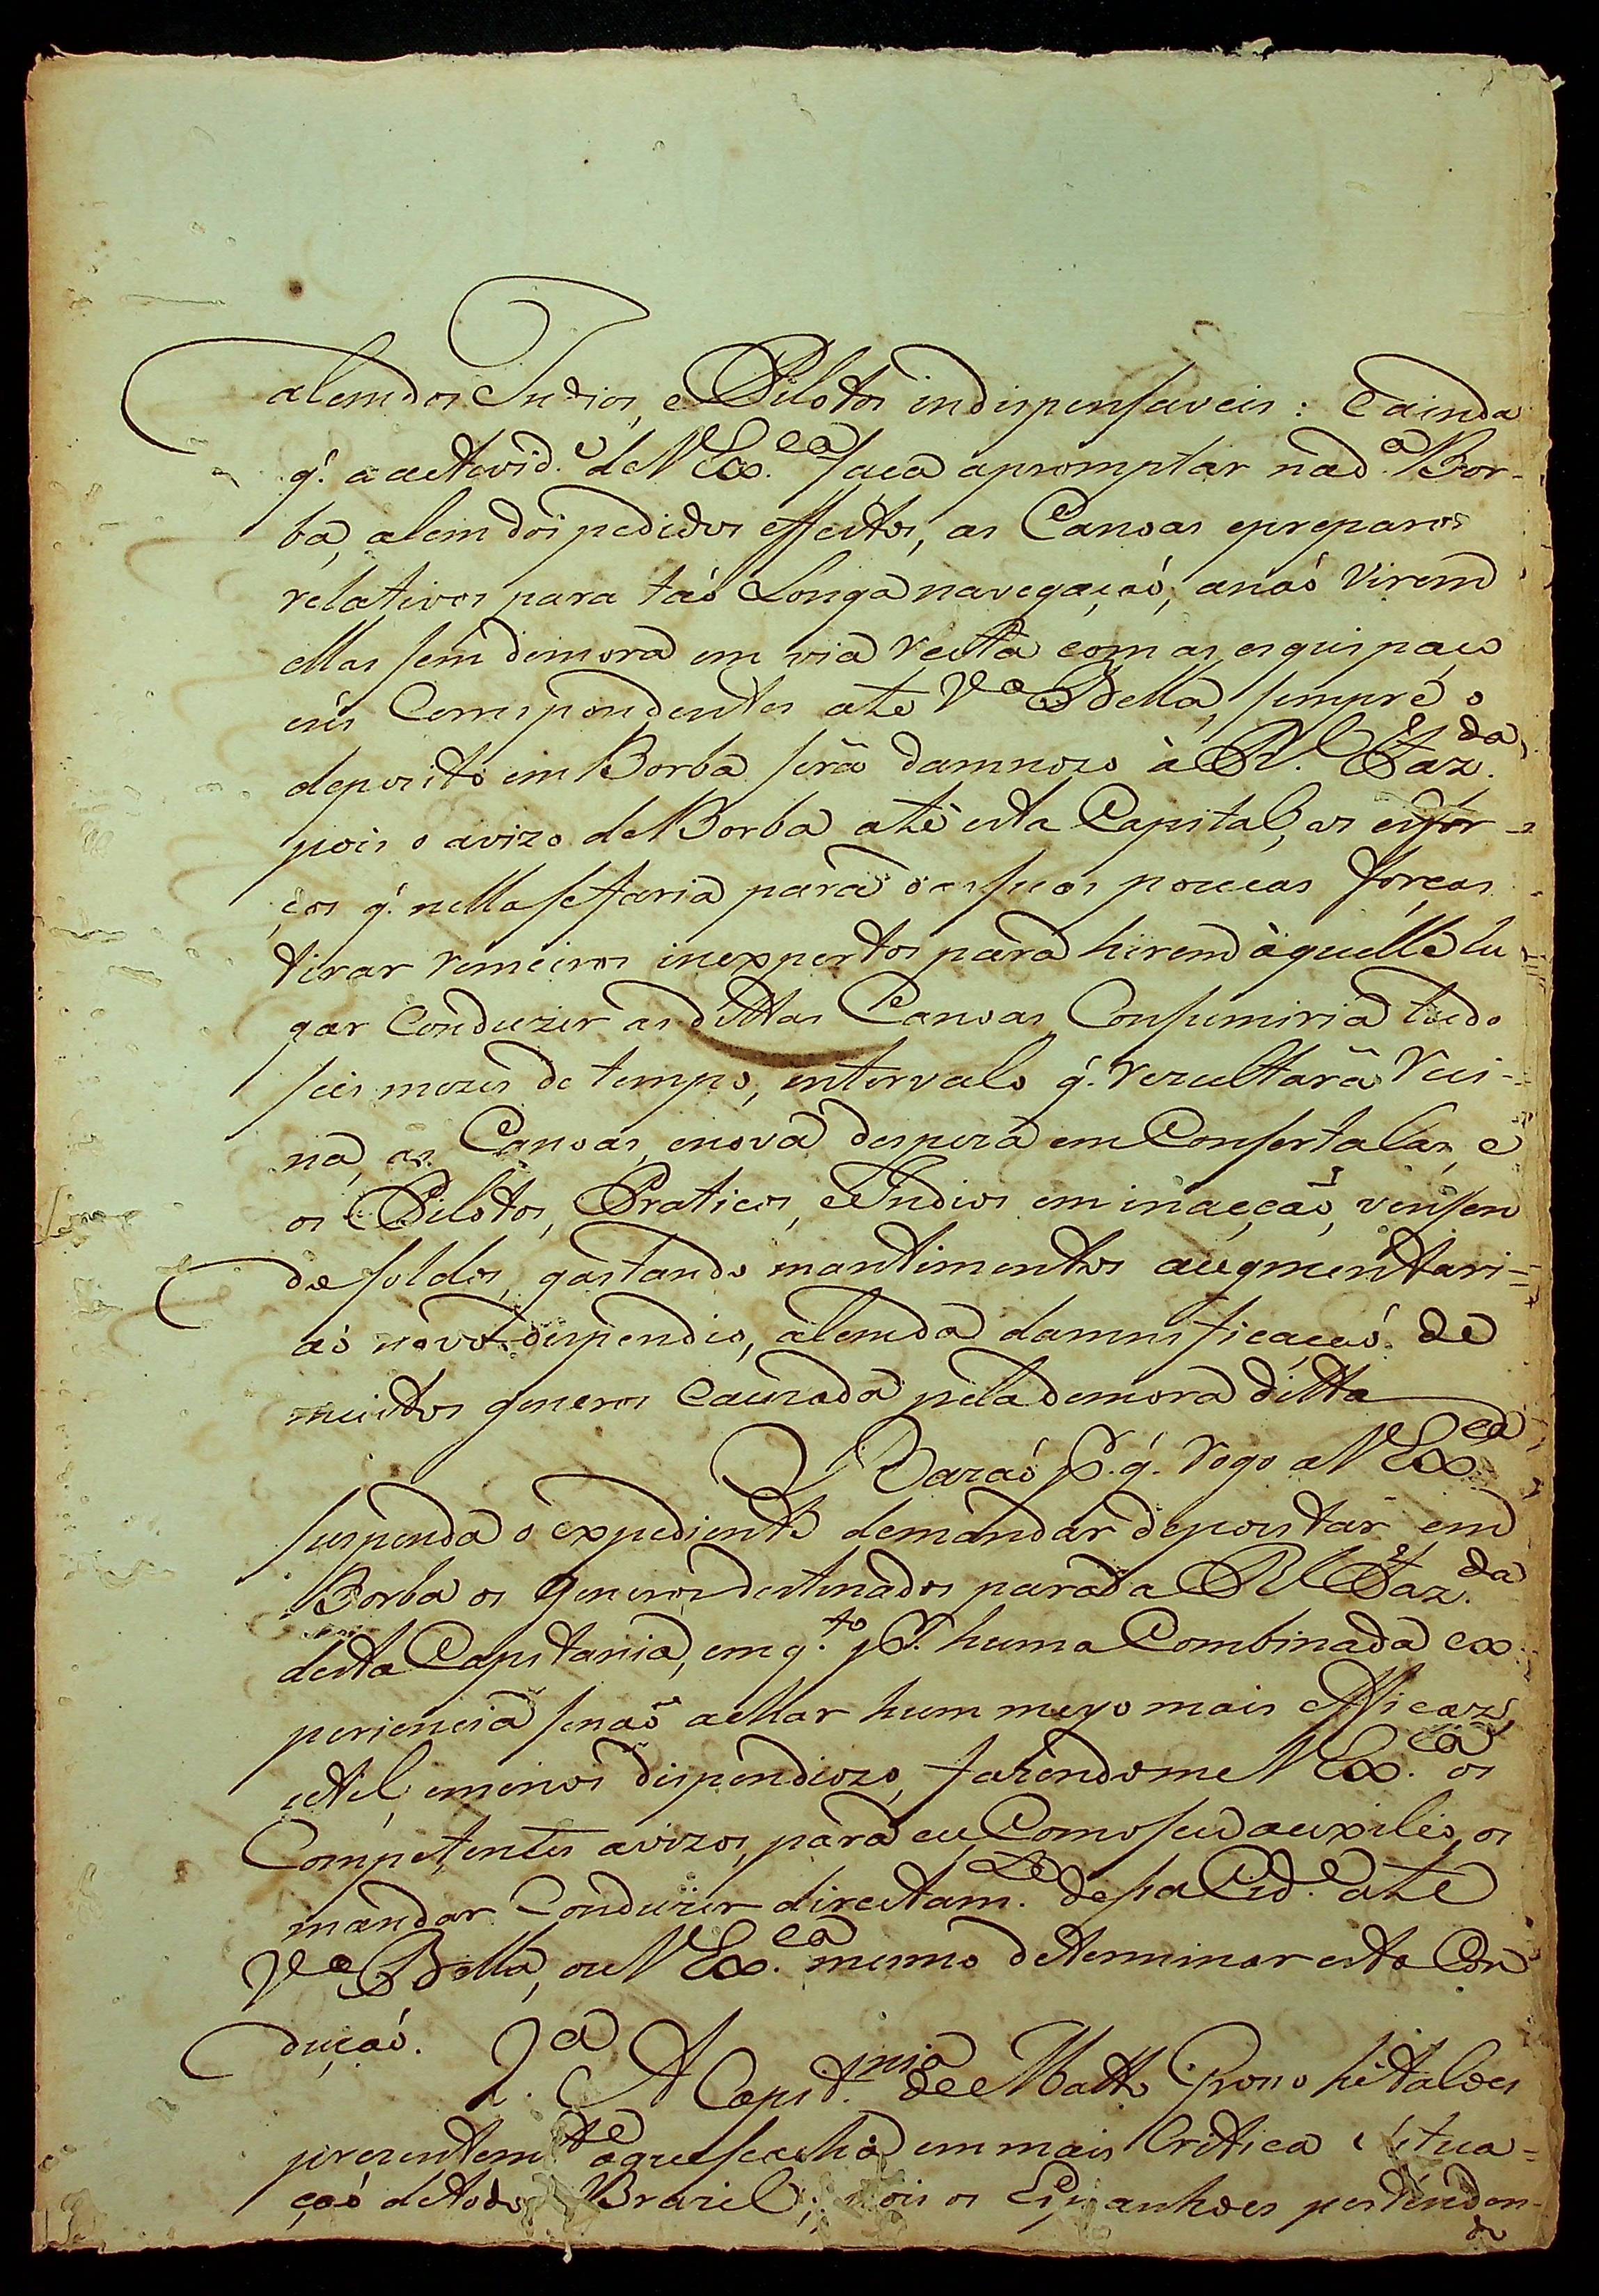 alem dos Indios, e Pilotos indispensaveis: E ainda
q̃. a activid.e de V Ex.ca faça apromptar na d.a Bor-
ba, alem dos pedidos effectos, as Canoas e preparos
relativos para taó Longa navegaçaó, a naó virem
ellas sem demora em via recta com as esquipaço
ens Correspondentes até V.a Bella, sempre o
deposito em Borba será damnozo à R.l Faz.da,
pois o avizo de Borba até esta Capital, os esfor-
ços q̃. nella se faria para das suas poucas forças
tirar remeiros inexpertos para hirem àquelle lu
gar Conduzir as dittas Canoas, Consumiria tudo
seis mezes de tempo, intervalo q̃. rezultará rui-
na, as Canoas, e nova despeza em Consertalas, e
os Pilotos, Praticos, e Indios em inacçaõ, vensen
do soldos, gastando mantimentos augmentari-
aó novo dispendio, alem da damnificaçaó de
muitos generos Cauzada pela demora ditta
Razaó p.r q̃. rogo a V Ex.ca
suspenda o expediente de mandar depozitar em
Borba os generos destinados para a R.l Faz.da
desta Capitania, em q.to p.r huma Combinada ex
periencia se naõ achar hum meyo mais efficaz,
util, e menos dispendiozo, fazendome V Ex.ca os
Competentes avizos, para eu Com o seu auxilio, os
mandar Conduzir directam.te dessa Cid.e até
V.a Bella, ou V Ex.ca mesmo determinar esta Con
duçaó.
2.a A Capit.nia de Matto Groso hé talves
prezentem.te a que se acha em mais Critica situa-
çaó de todo o Brazil; pois os Espanhoes pertenden-
do